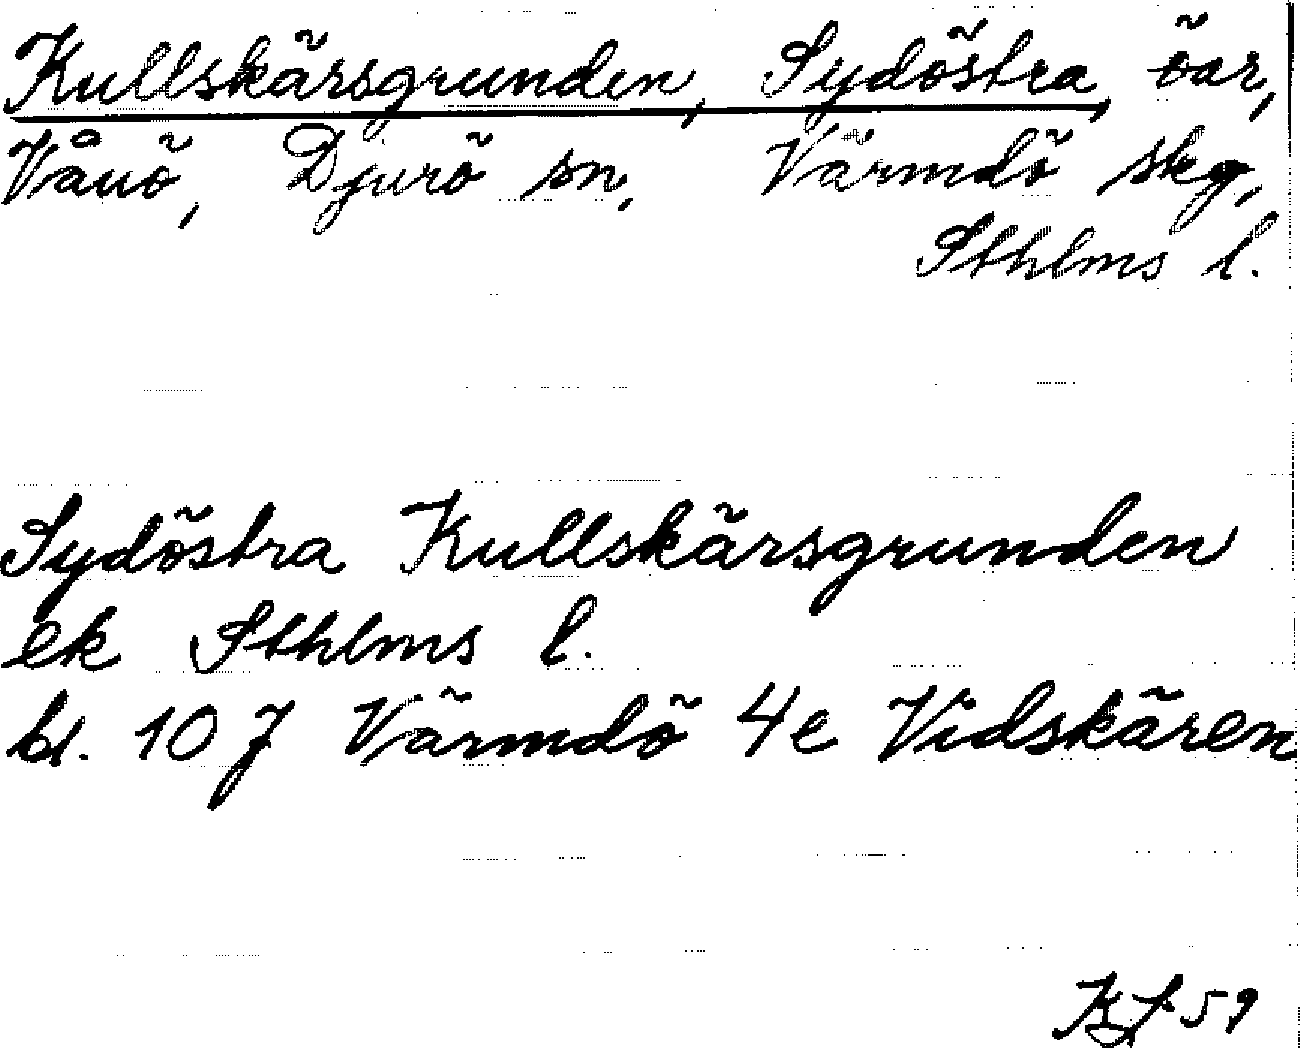 Kullskärsgrunden, Sydöstra, öar,
Vånö, Djurö sn, Värmdö skg,
Sthlms l.
Sydöstra Kullskärsgrunden
ek Sthlms l.
bl. 107 Värmdö 4e Vidskären
59